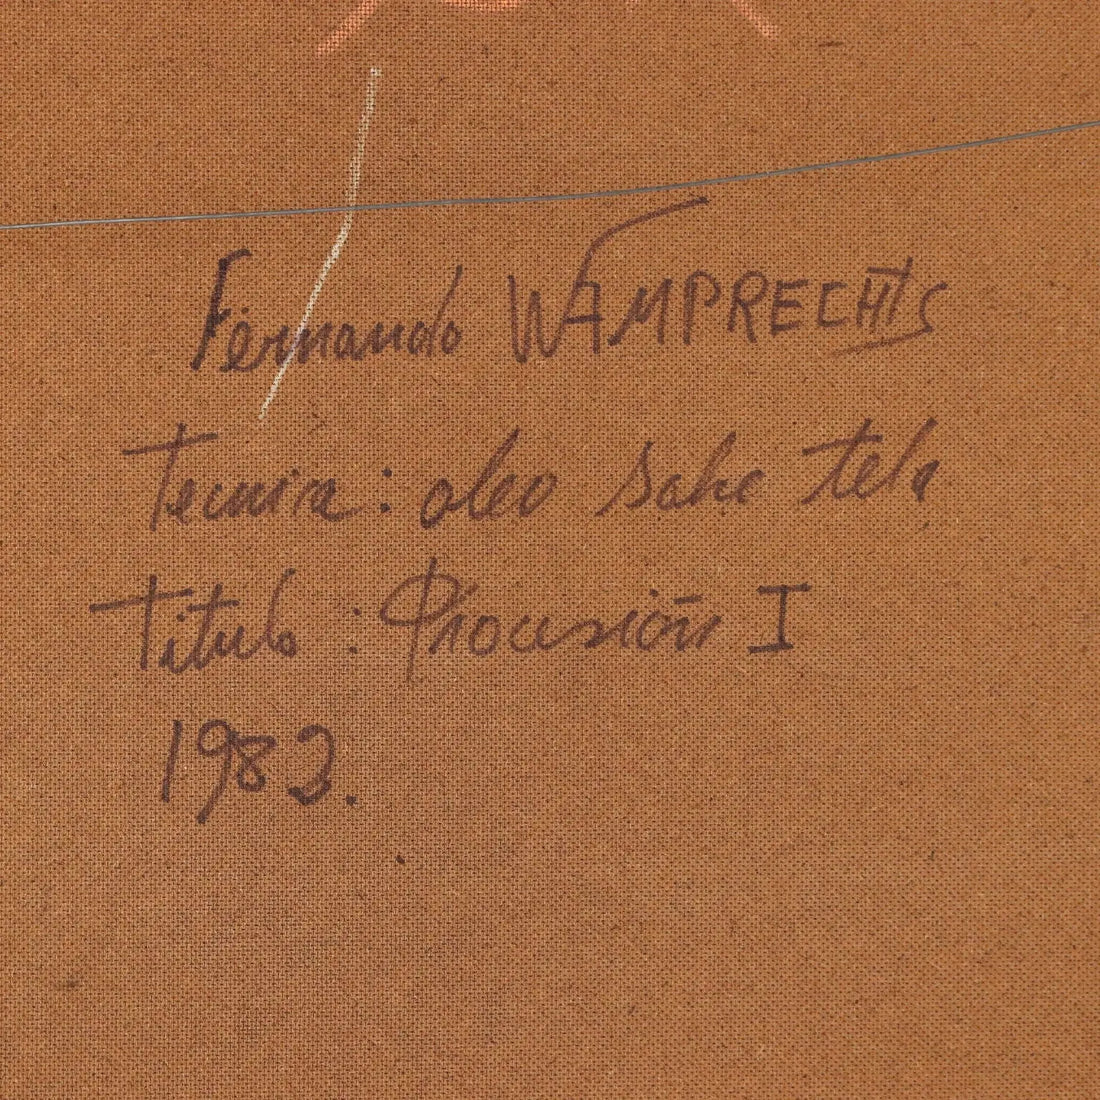 Fernando WAMPRECHTS
Tecnica: oleo sobre tela
Titulo: Procesión I
1982.